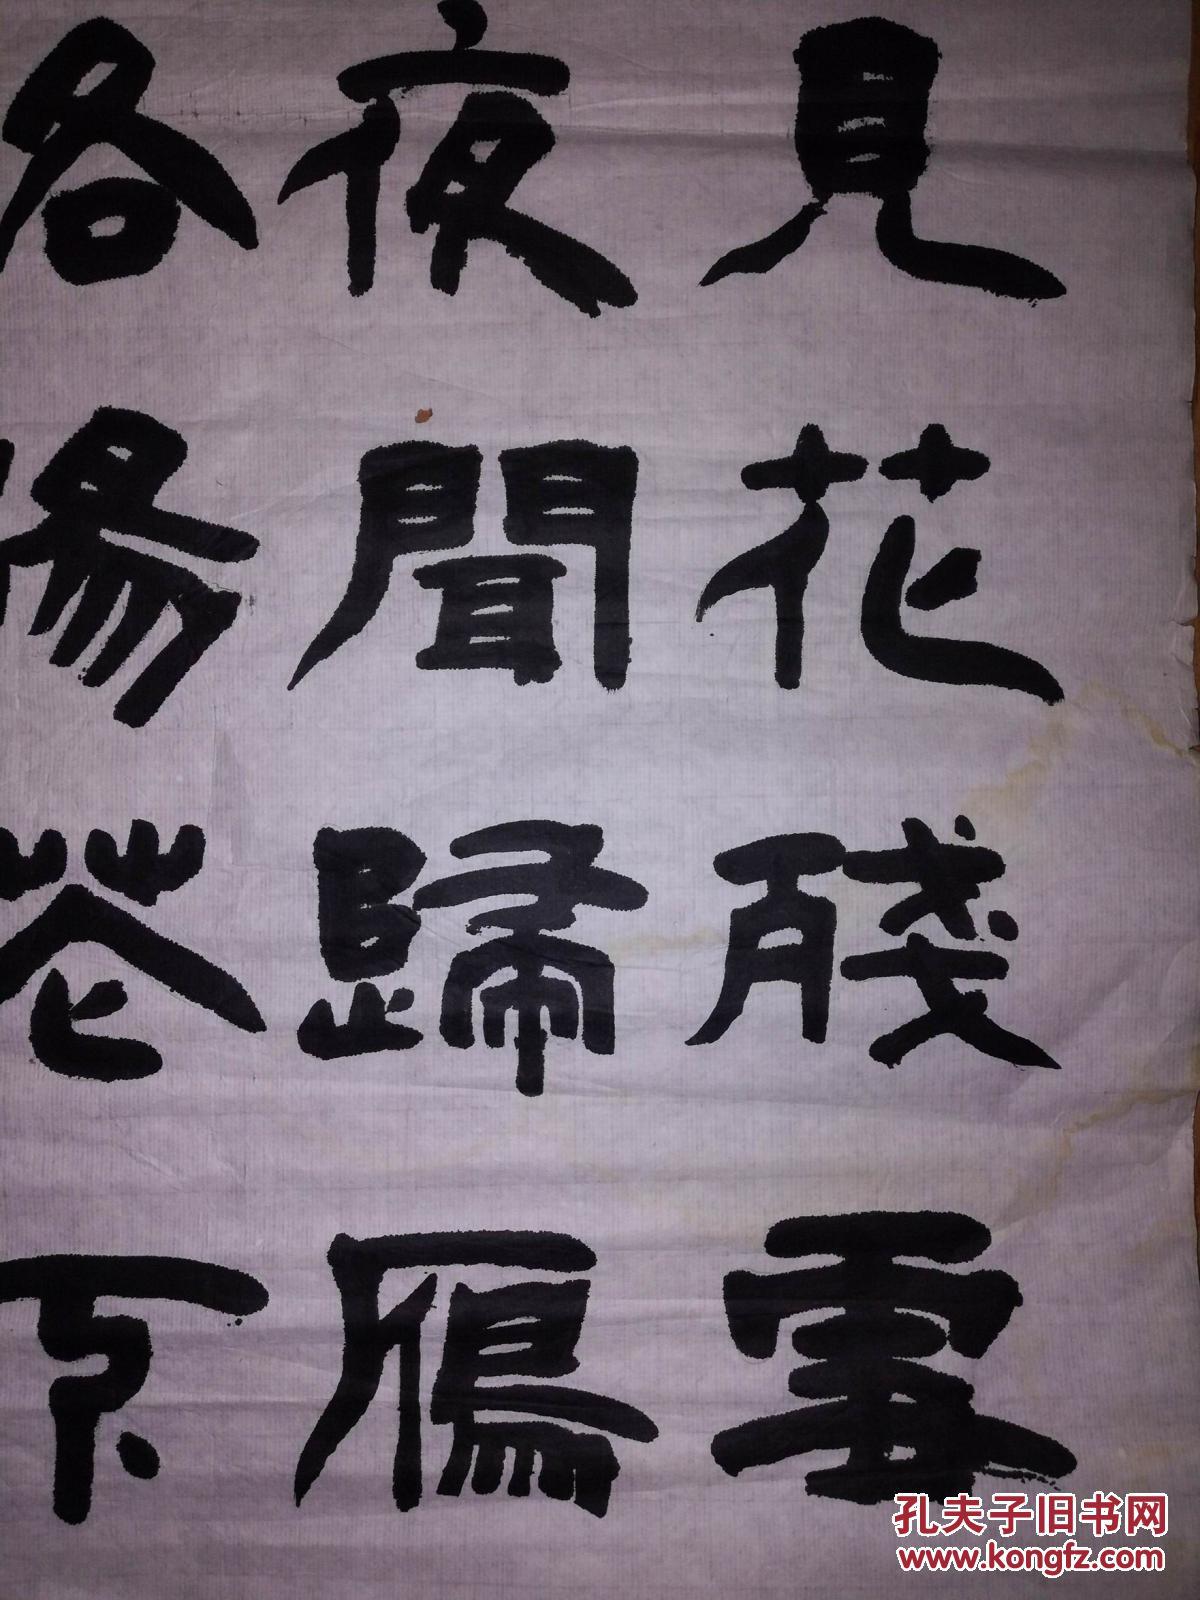 見花殘雪
夜聞歸鴈
洛陽花下
孔夫子旧书网
www.kongfz.com